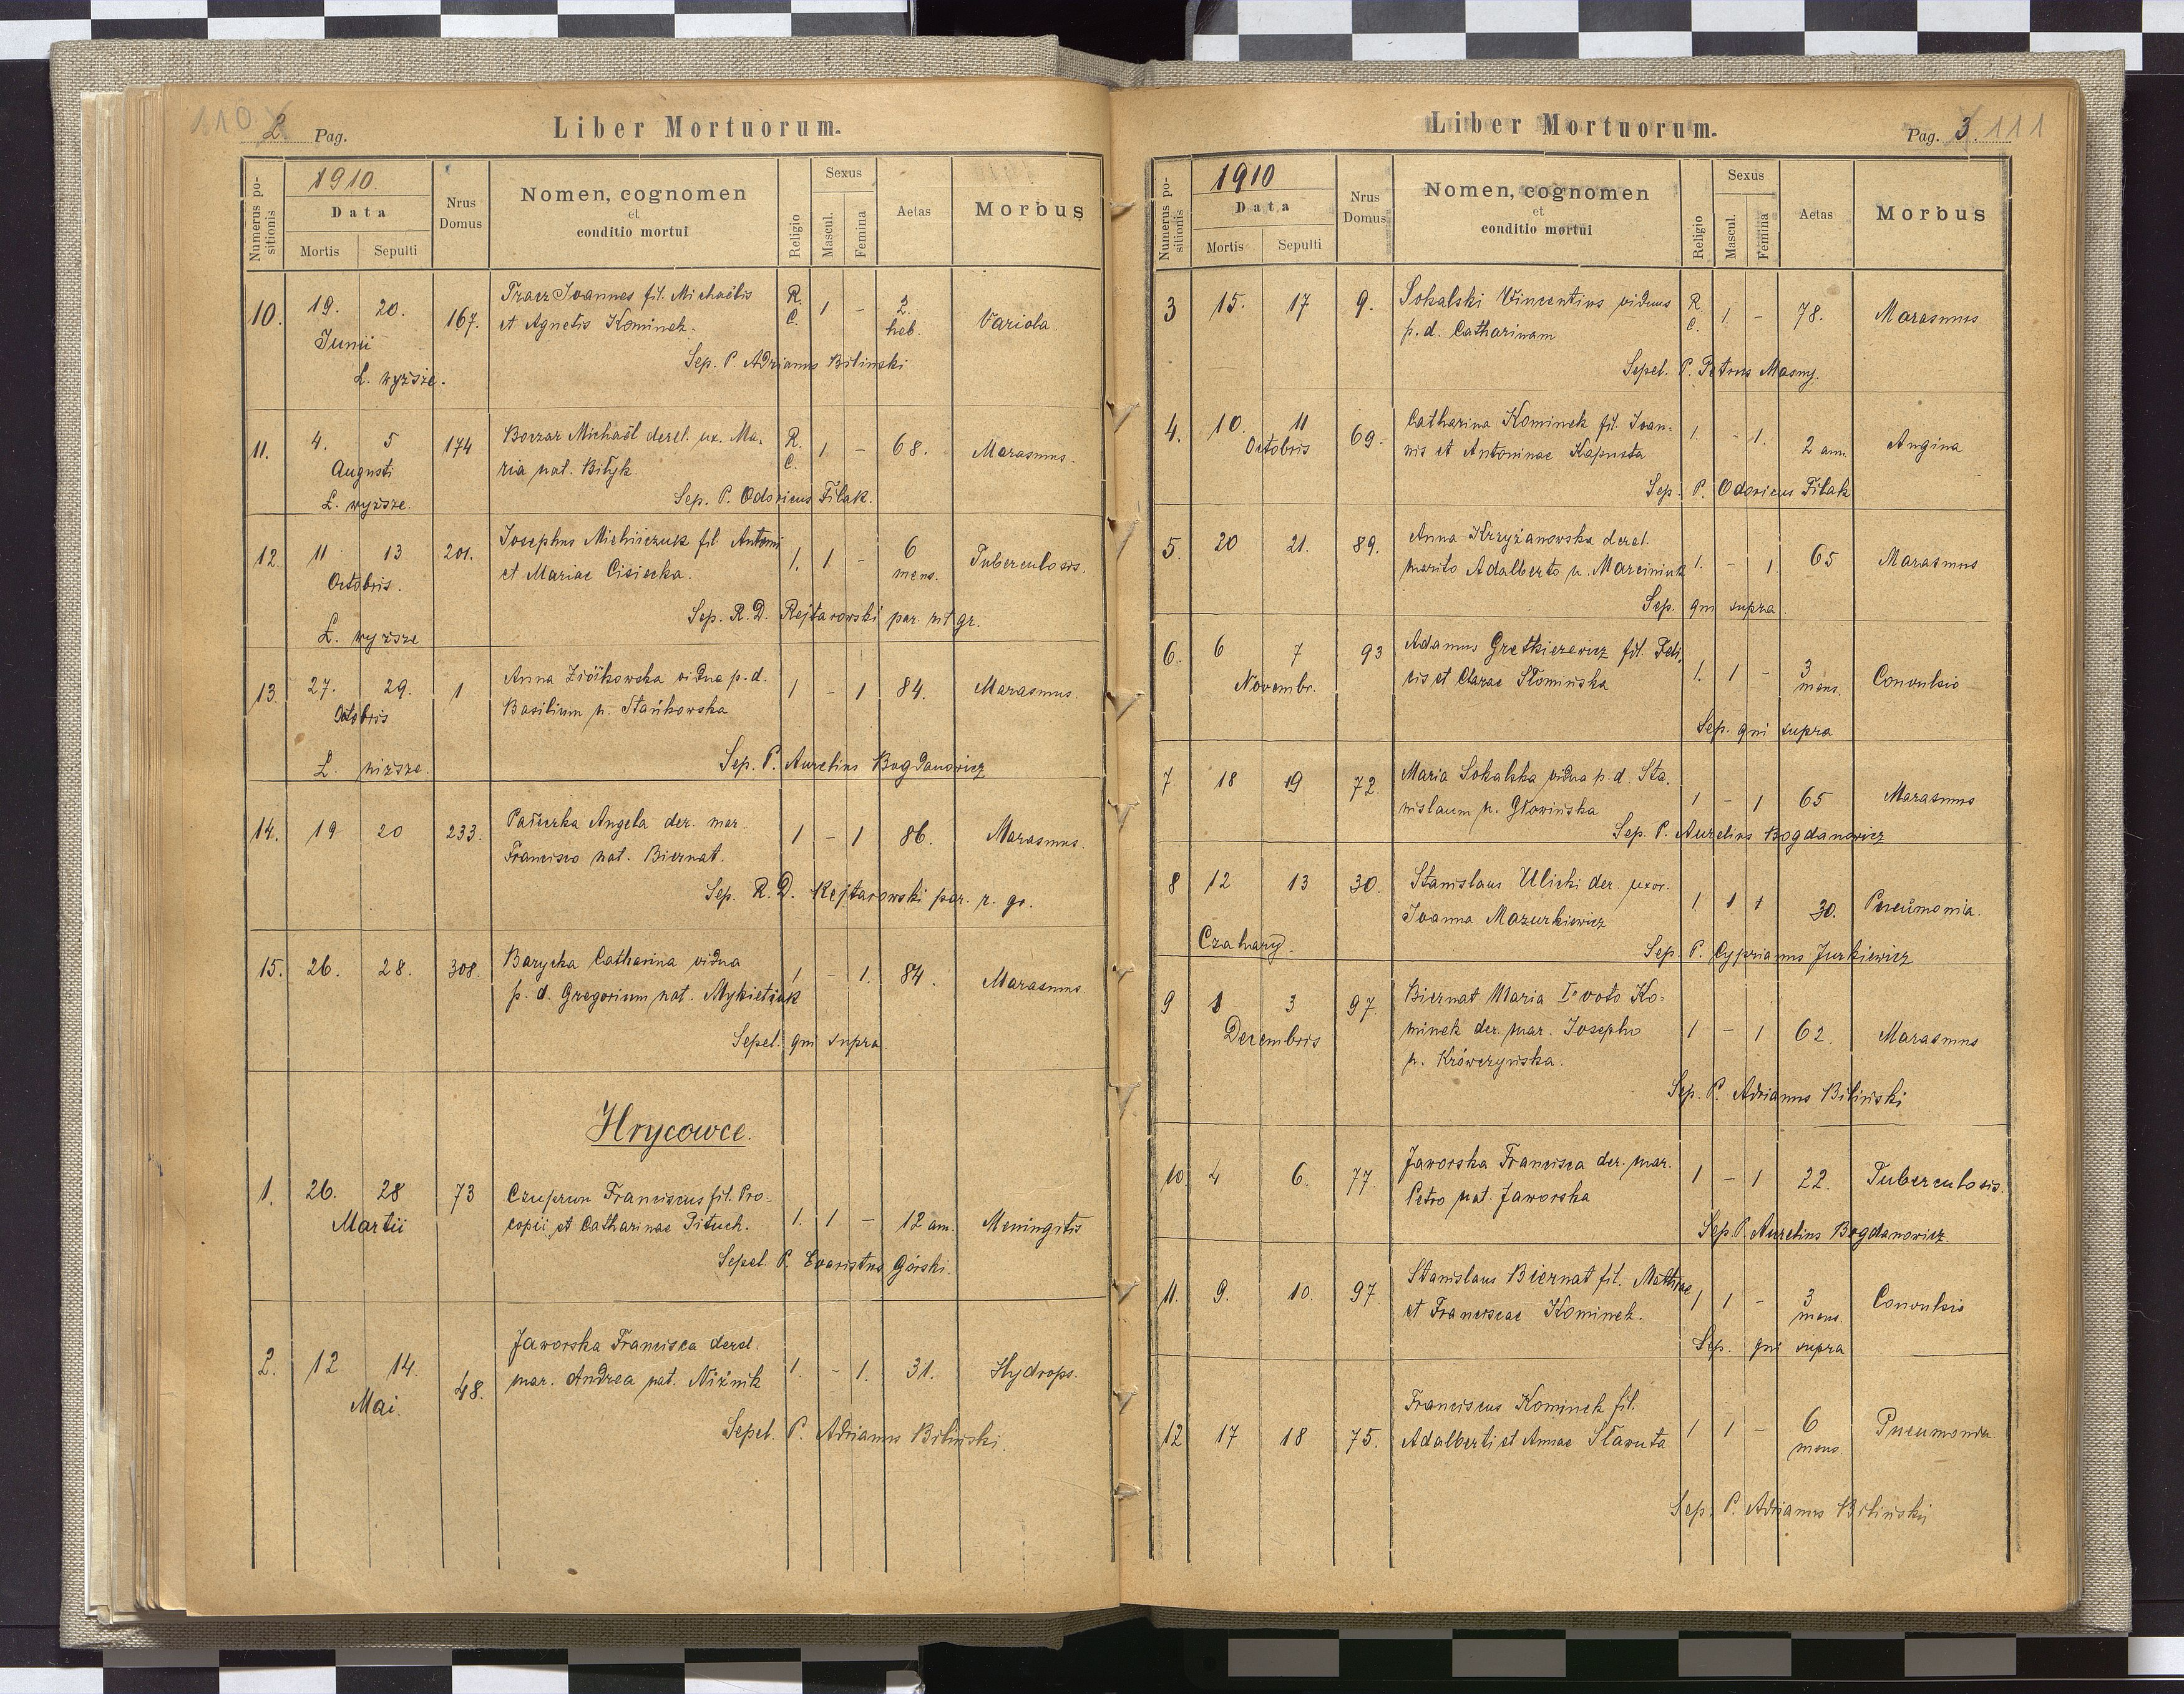 110
2 Pag.
Liber Mortuorum.
Numerus po-
sitionis
1910.
Data
Mortis
Sepulti
Nrus
Domus
Nomen, cognomen
et
conditio mortui
Religio
Sexus
Mascul.
Femina
Aetas
Morbus
10. 19. 20. 167. Tracz Joannes fil. Michaëlis R. 1 - 2.
Junii et Agnetis Kominek. C. heb. Variola.
Ł. wyższe. Sep. P. Adrianus Biliński
11. 4. 5 174 Boczar Michaël derel. ux. Ma- R. 1 - 68. Marasmus.
Augusti ria nat. Biłyk. C.
Ł. wyższe. Sep. P. Odoricus Filak.
12. 11 13 201. Josephus Michniczuk fil. Antoni 1. 1 - 6 Tuberculosis.
Octobris. et Mariae Cisiecka. mens.
Ł. wyższe Sep. R. D. Rejtarowski par. rit gr.
13 27. 29. 1 Anna Ziółkowska vidua p. d. 1 - 1 84. Marasmus.
Octobris Basilium n. Stańkowska
Ł. niższe. Sep. P. Aurelius Bogdanowicz
14. 19 20 233. Pałeczka Angela der. mar. 1 - 1 86. Marasmus.
Francisco nat. Biernat.
Sep. R. D. Rejtarowski par. r. gr.
15. 26. 28. 308. Barycka Catharina vidua 1 - 1. 84. Marasmus.
p. d. Gregorium nat. Mykietiuk
Sepel. qui supra
Hrycowce.
1. 26. 28 73 Czuprun Franciscus fil. Pro- 1. 1 - 12 an. Meningitis
Martii copii et Catharinae Pituch.
Sepel. P. Evaristus Górski.
2. 12 14. 48. Jaworska Francisca derel. 1. - 1. 31. Hydrops.
Mai. mar. Andrea nat. Niżnik
Sepel. P. Adrianus Biliński.
Liber Mortuorum.
Pag. 3. 111
Numerus po-
sitionis
1910
Data
Mortis
Sepulti
Nrus
Domus
Nomen, cognomen
et
conditio mortui
Religio
Sexus
Mascul.
Femina
Aetas
Morbus
3 15. 17 9. Sokalski Vincentius viduus R. 1. - 78. Marasmus
p. d. Catharinam C.
Sepel. P. Petrus Masny.
4. 10. 11 69. Catharina Kominek fil. Joan- 1. - 1. 2 ann. Angina
Octobris nis et Antoninae Kapusta
Sep. P. Odoricus Filak
5. 20 21. 89. Anna Krzyżanowska derel. 1. - 1 65 Marasmus
marito Adalberto n. Marciniuk
Sep. qui supra
6. 6 7 93 Adamus Gretkierewicz fil. Feli- 1. 1 - 3 Convulsio
Novembr. cis et Clarae Słomińska mens.
Sep. qui supra
7 18 19 72. Maria Sokalska vidua p. d. Sta- 1 - 1 65 Marasmus
nislaum n. Głowińska
Sep. P. Aurelius Bogdanowicz
8 12 13 30. Stanislaus Ulicki der. uxor. 1. 1 1 30. Pneumonia.
Joanna Mazurkiewicz
Czahary. Sep. P. Cyprianus Jurkiewicz
9 1 3 97 Biernat Maria I° voto Ko- 1 - 1 62. Marasmus
Decembris minek der. mar. Josepho
n. Krówczyńska.
Sep. P. Adrianus Biliński
10 4 6. 77. Jaworska Francisca der. mar. 1 - 1 22. Tuberculosis.
Petro nat. Jaworska
Sep. P. Aurelius Bogdanowicz.
11. 9. 10. 97 Stanislaus Biernat fil. Mathiae 1 1 - 3 Convulsio
et Franciscae Kominek. mens.
Sep. qui supra
12 17 18 75. Franciscus Kominek fil. 1 1 - 6 Pneumonia
Adalberti et Annae Sławuta mens.
Sep. P. Adrianus Biliński